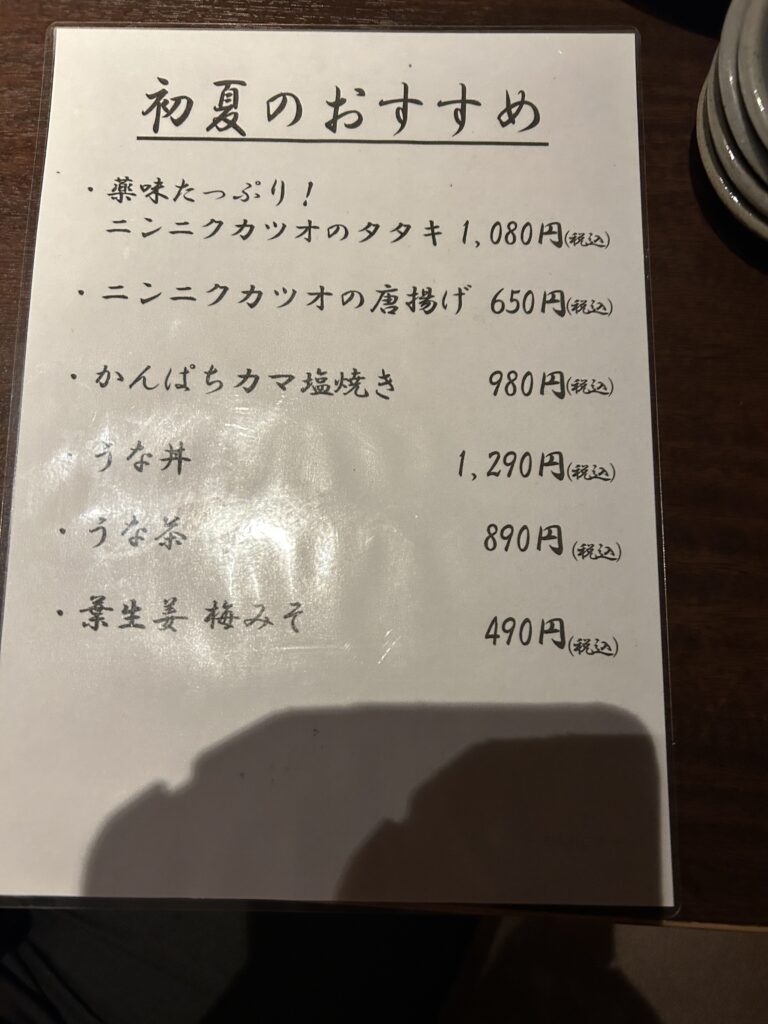 初夏のおすすめ
・薬味たっぷり！
ニンニクカツオのタタキ 1,080円(税込)
・ニンニクカツオの唐揚げ 650円(税込)
・かんぱちカマ塩焼き 980円(税込)
・うな丼 1,290円(税込)
・うな茶 890円(税込)
・葉生姜 梅みそ 490円(税込)